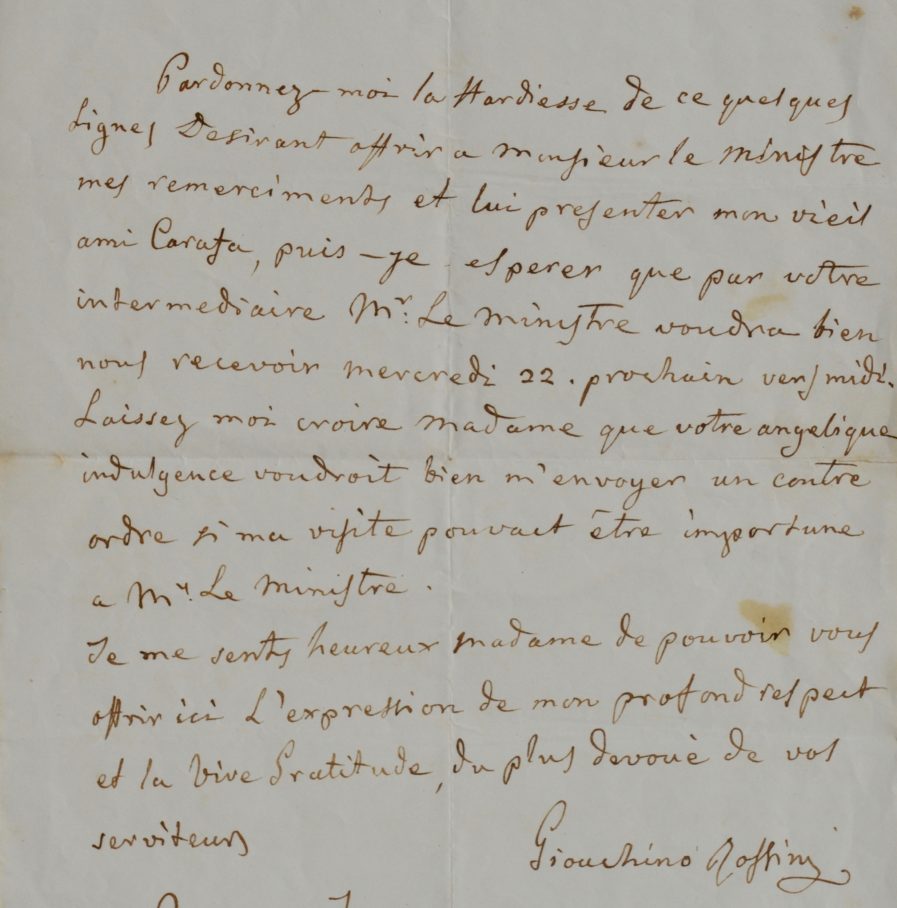 Pardonnez-moi la Hardiesse de ce quelques
Lignes Desirant offrir a monsieur le ministre
mes remerciments et lui presenter mon vieil
ami Carafa, puis-je esperer que par votre
intermediaire Mr. Le ministre voudra bien
nous recevoir mercredi 22. prochain vers midi.
Laissez moi croire madame que votre angelique
indulgence voudroit bien m'envoyer un contre
ordre si ma visite pouvait être importune
a Mr. Le ministre.
Je me sents heureux madame de pouvoir vous
offrir ici L'expression de mon profond respect
et la vive Gratitude, du plus devoué de vos
serviteurs
Giouchino Rossini